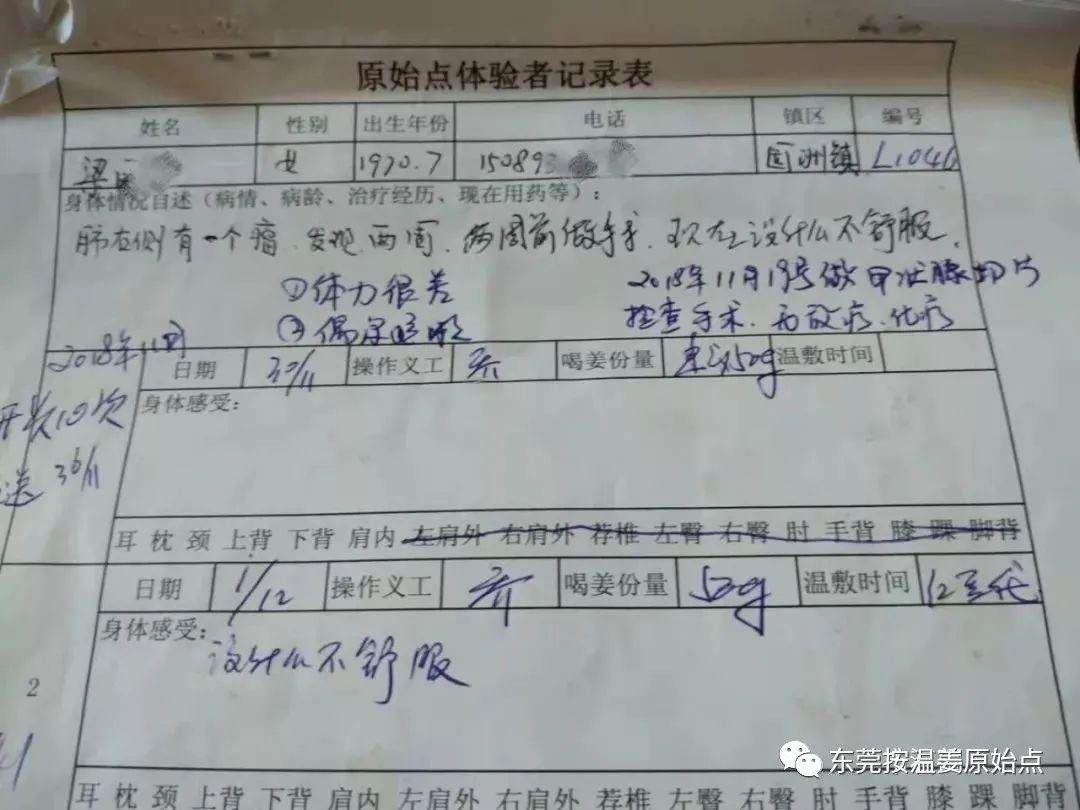 原始点体验者记录表
姓名 性别 出生年份 电话 镇区 编号
梁 女 1970.7 150893 洲镇 L1046
身体情况自述（病情、病龄、治疗经历、现在用药等）：
肺右侧有一个瘤、发现两周、两周前做手术、现在没什么不舒服。
①体力很差 2018年11月19号做甲状腺切片
②偶尔咳嗽 检查手术、无放疗、化疗
2018年11月
日期 30/11 操作义工 乔 喝姜份量 50g 温敷时间
开卡10次 身体感受：
送 30/11
耳 枕 颈 上背 下背 肩内 左肩外 右肩外 荐椎 左臀 右臀 肘 手背 膝 踝 脚背
日期 1/12 操作义工 乔 喝姜份量 50g 温敷时间 12
身体感受：
没什么不舒服
2
耳 枕 颈 上背 下背 肩内 左肩外 右肩外 荐椎 左臀 右臀 肘 手背 膝 踝 脚背
东莞按温姜原始点